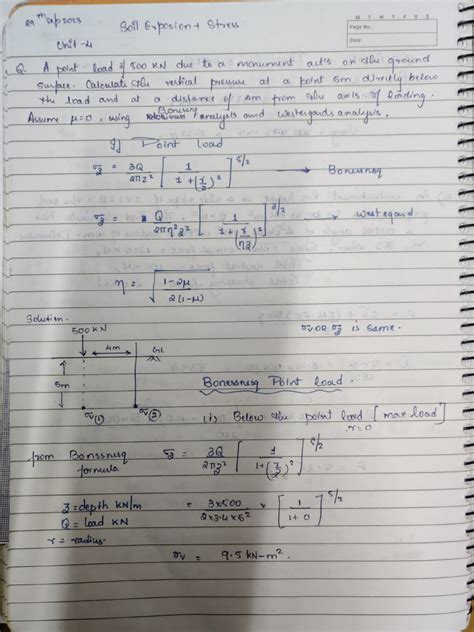 29th Sep 2023
Soil Exposion + Stress
M T W T F S S
Page No.:
Date:
Unit-4
Q. A point load of 500 KN due to a monument act's on the ground
surface. Calculate the vertical pressure at a point 5m directly below
the load and at a distance of 4m from the axis of loading.
Assume μ=0, using Bonussnq analysis and westergards analysis.
If Point Load
σz = 3Q/2πz² [1/1+(r/z)²]^5/2 → Bonussnsq
σz = Q/2πη²z² [1/1+(r/ηz)²]^3/2 → westergard.
η = √1-2μ/2(1-μ)
Solution.
σv OR σz is same.
500 KN
4m
GL
5m
σv(1) σv(2)
Bonessnusq Point load.
(i) Below the point load [max load]
r=0
from Bonssnusq formula σz = 3Q/2πz² [1/1+(r/z)²]^5/2
z = depth kN/m
Q = Load kN
r = radius.
= 3×500/2×3.14×5² × [1/1+0]^5/2
σv = 9.5 kN-m².